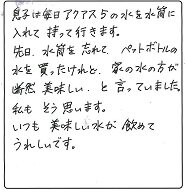 息子は毎日アクアス5の水を水筒に
入れて 持って行きます。
先日、水筒を忘れて、ペットボトルの
水を買ったけれど、家の水の方が
断然 美味しい、と 言っていました。
私も そう思います。
いつも 美味しい水が 飲めて
うれしいです。